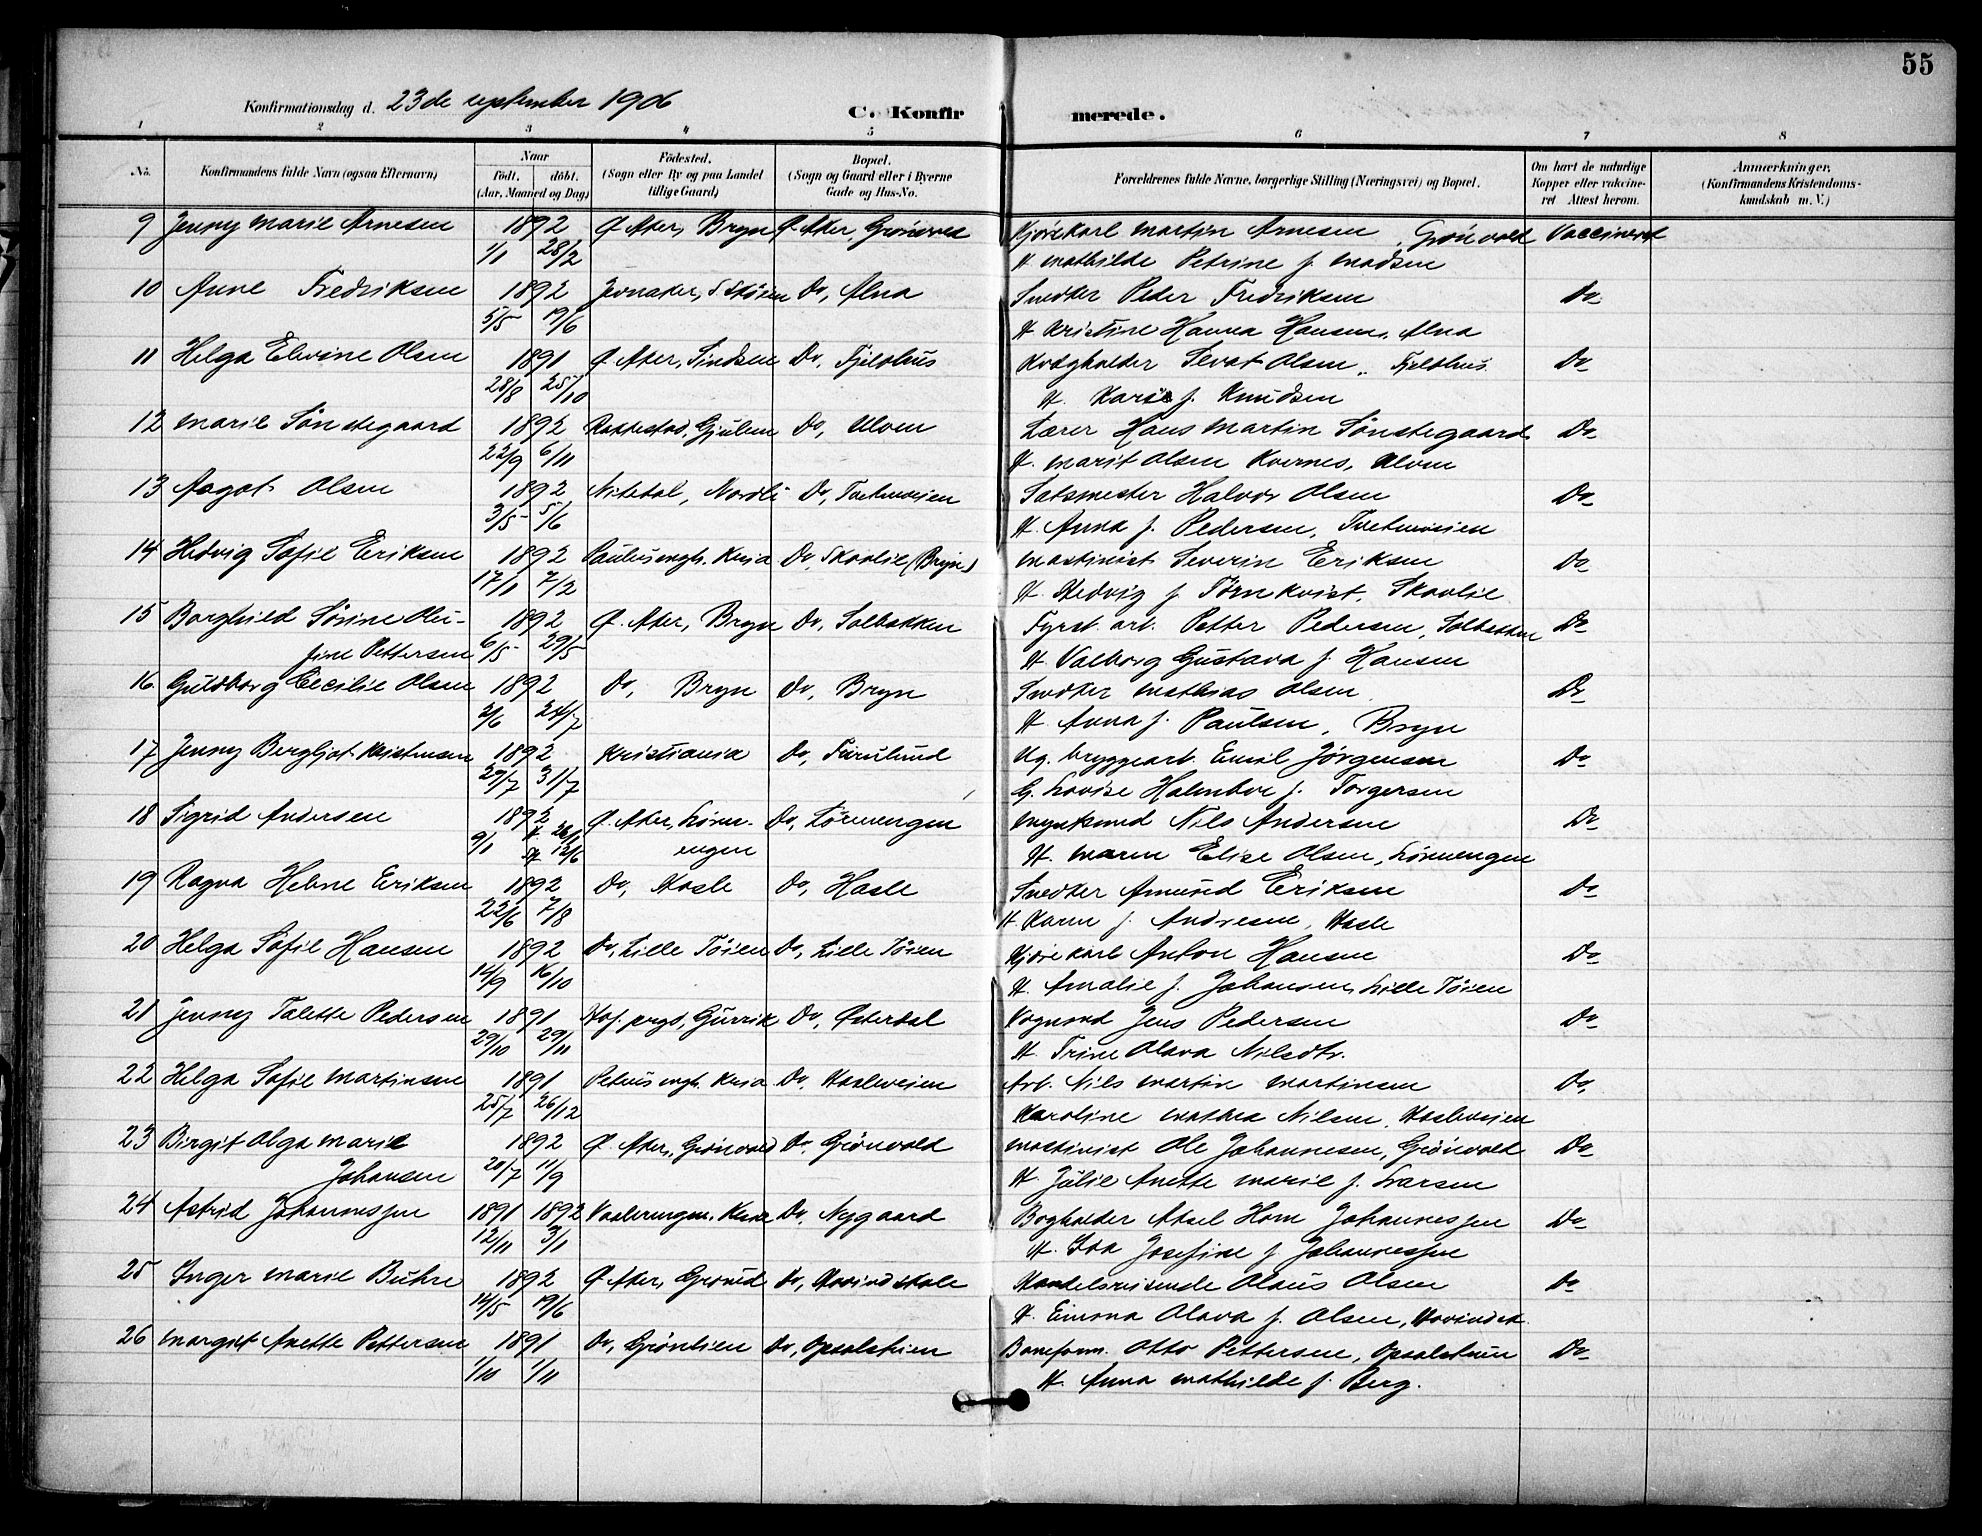 55
Konfirmationsdag d. 23de september 1906
C. Konfirmerede.
1 2 3 4 5 6 7 8
No. Konfirmandens fulde Navn (ogsaa Efternavn) Naar Født. døbt. (Aar, Maaned og Dag) Fødested. (Sogn eller By og paa Landet tillige Gaard) Bopæl. (Sogn og Gaard eller i Byerne Gade og Hus-No. Forældrenes fulde Navne, borgerlige Stilling (Næringsvei) og Bopæl. Om havt de naturlige Kopper eller vakcineret Attest herom. Anmærkninger. (Konfirmandens Kristendomskundskab m. V.)
9 Jenny Marie Arnesen 1892 Ø. Aker, Bryn Ø. Aker, Grönvold Kjørekarl Martin Arnesen, Grönvold Vaccineret
1/1 28/2 H. Mathilde Petrine f. Madsen
10 Anne Fredriksen 1892 Jevnaker, Do, Alna Snedker Peder Fredriksen Do
5/5 19/6 H. Kristine Hanna Hansen, Alna
11 Helga Elvine Olsen 1891 Ø. Aker, Sindsen Do, Fjeldhus Kvægholder Sevat Olsen, Fjeldhus Do
28/8 25/10 H. Kari f. Knudsen
12 Marie Sönstegaard 1892 Rakkestad, Gjulem Do, Ulven Lærer Hans Martin Sönstegaard Do
22/9 6/11 H. Marit Olsen Kvernes, Ulven
13 Aagot Olsen 1892 Nitedal, Nordli Do, Tvetenveien Salsmester Halvor Olsen Do
3/5 5/6 H. Anna f. Pedersen, Tvetenveien
14 Hedvig Sofie Eriksen 1892 Paulusmgh. Kria Do, Skovlie (Bryn) Maskinist Severin Eriksen Do
17/1 7/2 H. Hedvig f. Törnkvist, Skovlie
15 Borghild Sörine Olu- 1892 Ø. Aker, Bryn Do, Solbakken Fyrst. arb. Petter Pedersen, Solbakken Do
fine Pettersen 6/5 29/5 H. Valborg Gustava f. Hansen
16 Guldborg Cecilie Olsen 1892 Do, Bryn Do, Bryn Snedker Mathias Olsen Do
2/6 24/7 H. Anna f. Paulsen, Bryn
17 Jenny Bergljot Kristensen 1892 Kristiania Do, Furulund Ug. bryggearb. Emil Jörgensen Do
29/7 31/7 G. Lovise Halmboe f. Torgersen
18 Sigrid Andersen 1892 Ø. Aker, Lören- Do, Lörenengen Mynksmed Nils Andersen Do
9/1 12/6 engen H. Maren Elise Olsen, Lörenengen
19 Ragna Helene Eriksen 1892 Do, Hasle Do, Hasle Snedker Amund Eriksen Do
22/6 7/8 H. Karen f. Andresen, Hasle
20 Helga Sofie Hansen 1892 Do, Lille Töien Do, Lille Töien Kjørekarl Anton Hansen Do
14/9 16/10 H. Amalie f. Johansen, Lille Töien
21 Jenny Talette Pedersen 1891 Hof. prgd, Do, Österdal Vognmd Jens Pedersen Do
29/10 29/11 H. Trine Olava Nilsdtr.
22 Helga Sofie Martinsen 1891 Petrusmgh. Kria Do, Hasleveien Arb. Nils Martin Martinsen Do
25/7 26/12 Karoline Mathea Nilsen, Hasleveien
23 Birgit Olga Marie 1892 Ø. Aker, Grönvold Do, Grönvold Maskinist Ole Johannesen, Grönvold Do
Johansen 20/7 11/9 H. Julie Anette Marie f. Larsen
24 Astrid Johannessen 1891 1892 Vaalerengen, Kria Do, Nygaard Bogholder Aksel Horn Johannessen Do
12/11 3/1 H. Ida Josefine f. Johannessen
25 Inger Marie Buhre 1892 Ø. Aker, Grorud Do, Hovindskole Handelsreisende Olaus Olsen Do
14/5 19/6 H. Emma Olava f. Olsen, Hovindsk.
26 Margit Anette Pettersen 1891 Do, Gröndlien Do, Opsalstuen Baneform. Otto Pettersen, Opsalstuen Do
1/10 1/11 H. Anna Mathilde f. Berg.